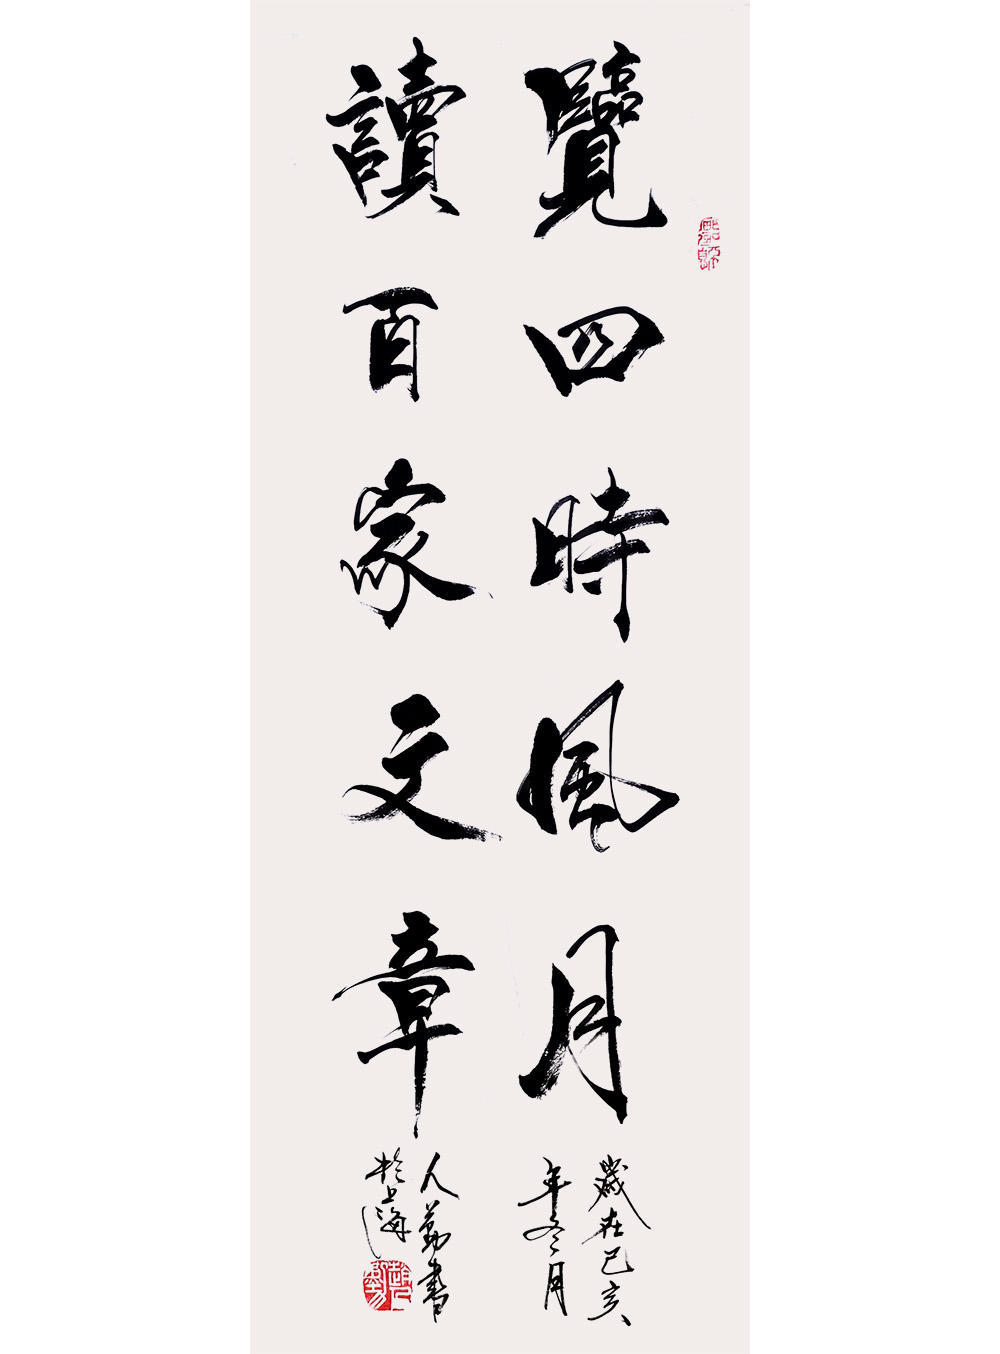 覽四時風月
讀百家文章
歲在己亥
年冬月
人勤書
於上海